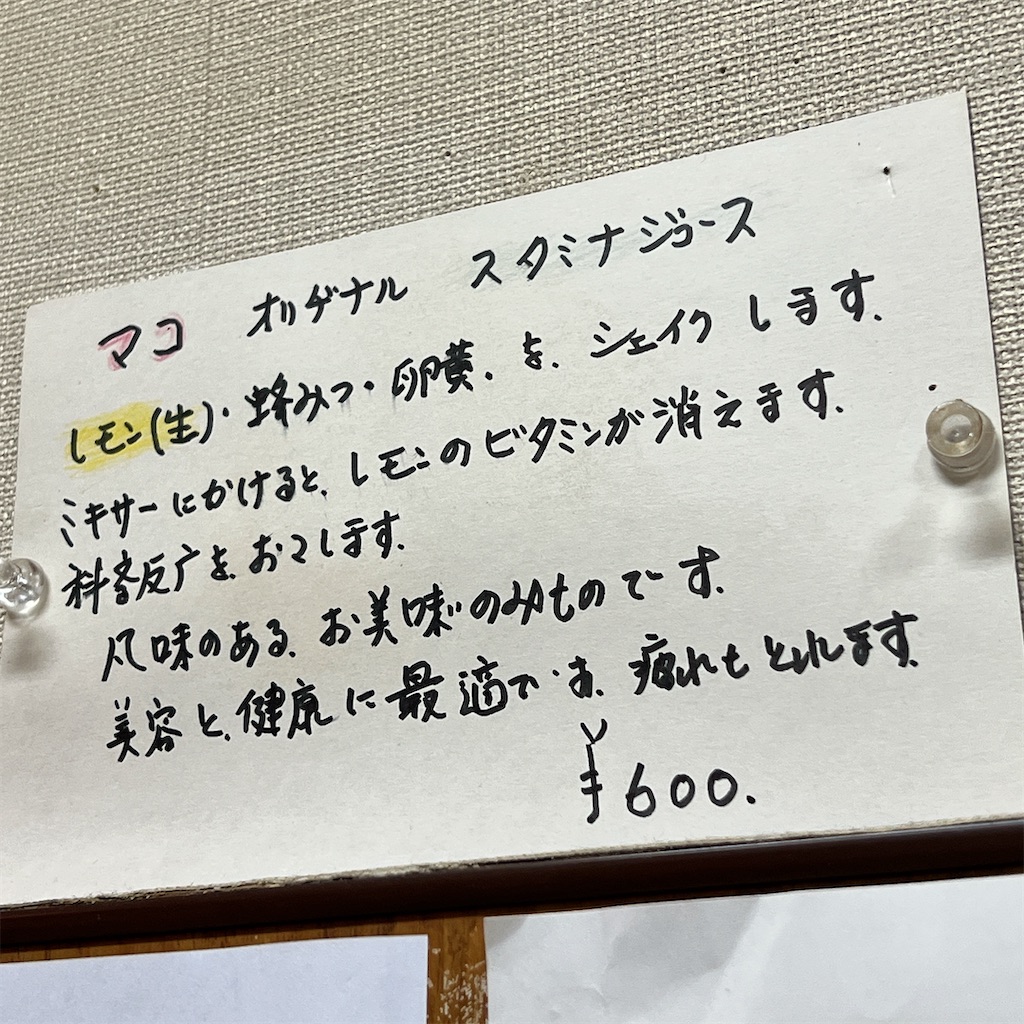 マコ オリヂナル スタミナジュース
レモン(生)・蜂みつ・卵黄、を、シェイクします。
ミキサーにかけると、レモンのビタミンが消えます。
科学反广を、おこします。
風味のある、お美味のみものです。
美容と、健康に最適です。疲れもとれます。
¥600.